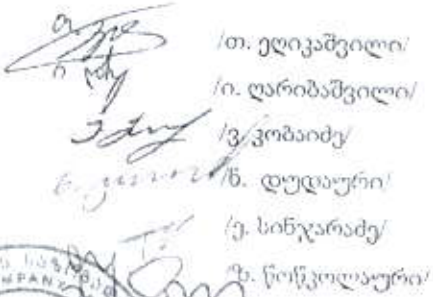 /თ. ელიკაშვილი/
/ი. ღარიბაშვილი/
/ვ. კობაიძე/
/ნ. დუდაური/
/ე. სინჯარაძე/
წოწკოლაური/
COMPANY